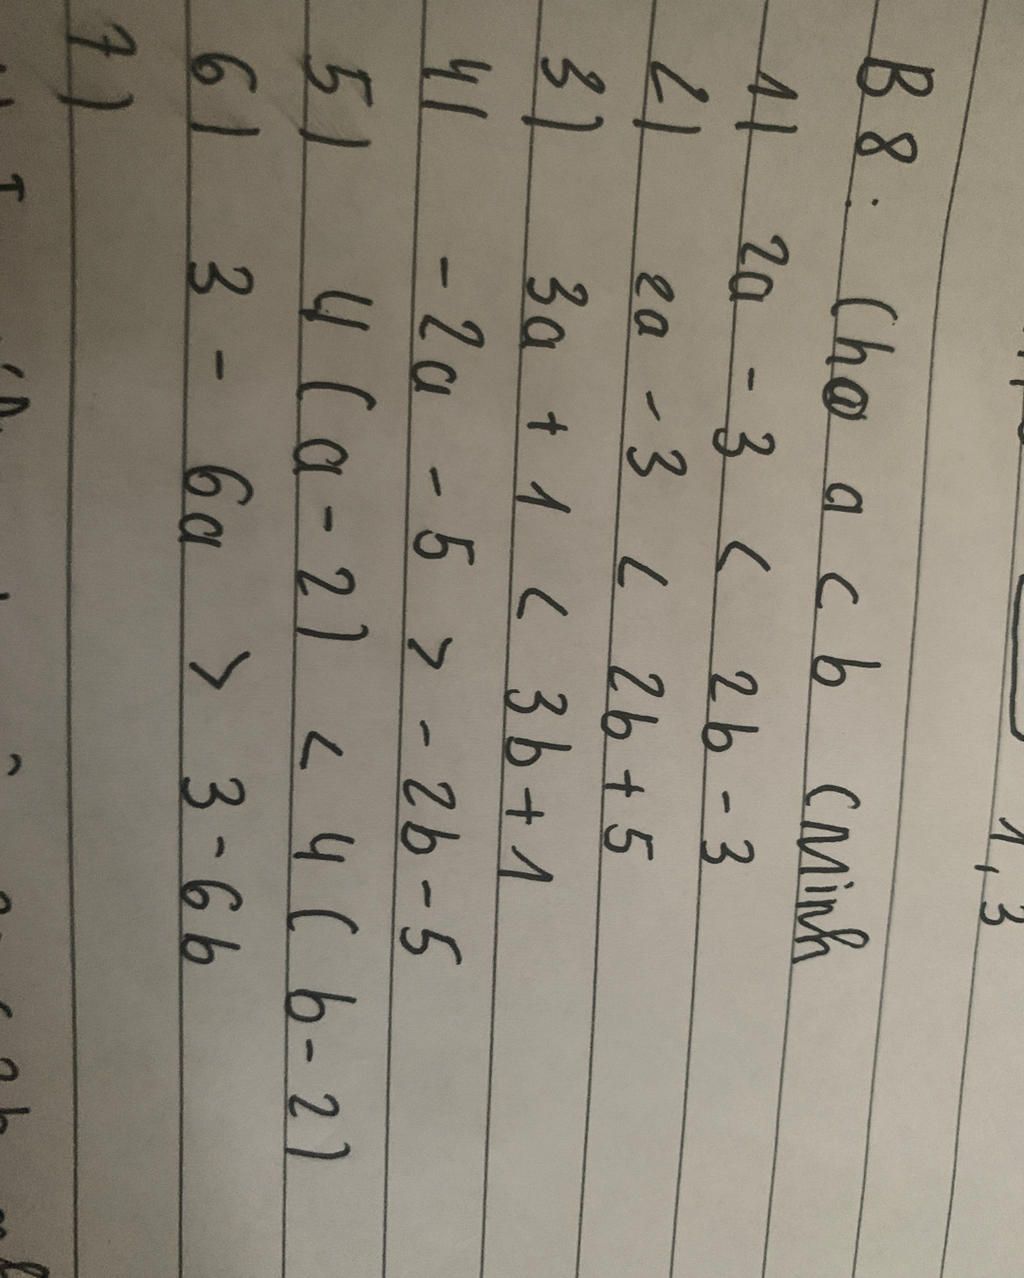 1,3
B8: Cho a < b CMinh
1) 2a - 3 < 2b - 3
2) 2a - 3 < 2b + 5
3) 3a + 1 < 3b + 1
4) -2a - 5 > -2b - 5
5) 4(a - 2) < 4(b - 2)
6) 3 - 6a > 3 - 6b
7)